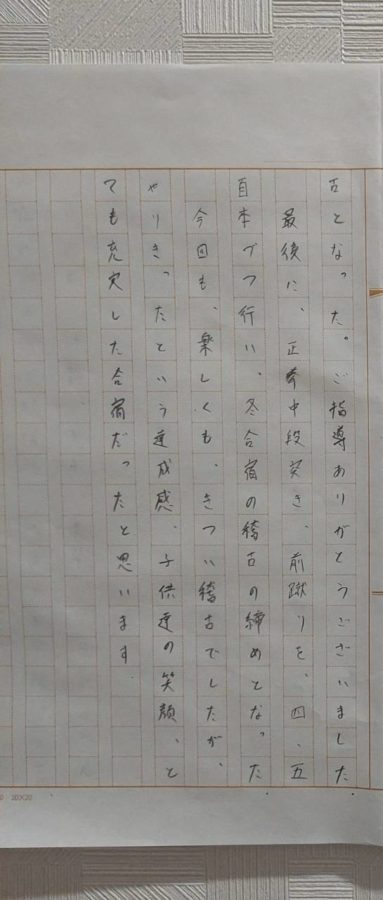 古となった。ご指導ありがとうございました
最後に、正拳中段突き、前蹴りを、四、五
百本づつ行い、冬合宿の稽古の締めとなった
今回も、楽しくも、きつい稽古でしたが、
やりきったという達成感、子供達の笑顔、と
ても充実した合宿だったと思います
20×20